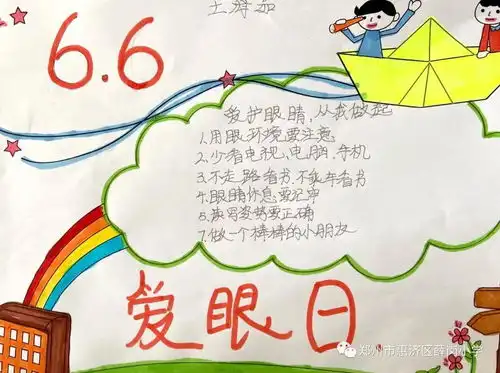 6.6
爱护眼睛,从我做起
1.用眼环境要注意
2.少看电视、电脑、手机
3.不走路看书.不乘车看书
4.眼睛休息要记牢
5.读写姿势要正确
7.做一个棒棒的小朋友
爱眼日
郑州市惠济区薛岗小学